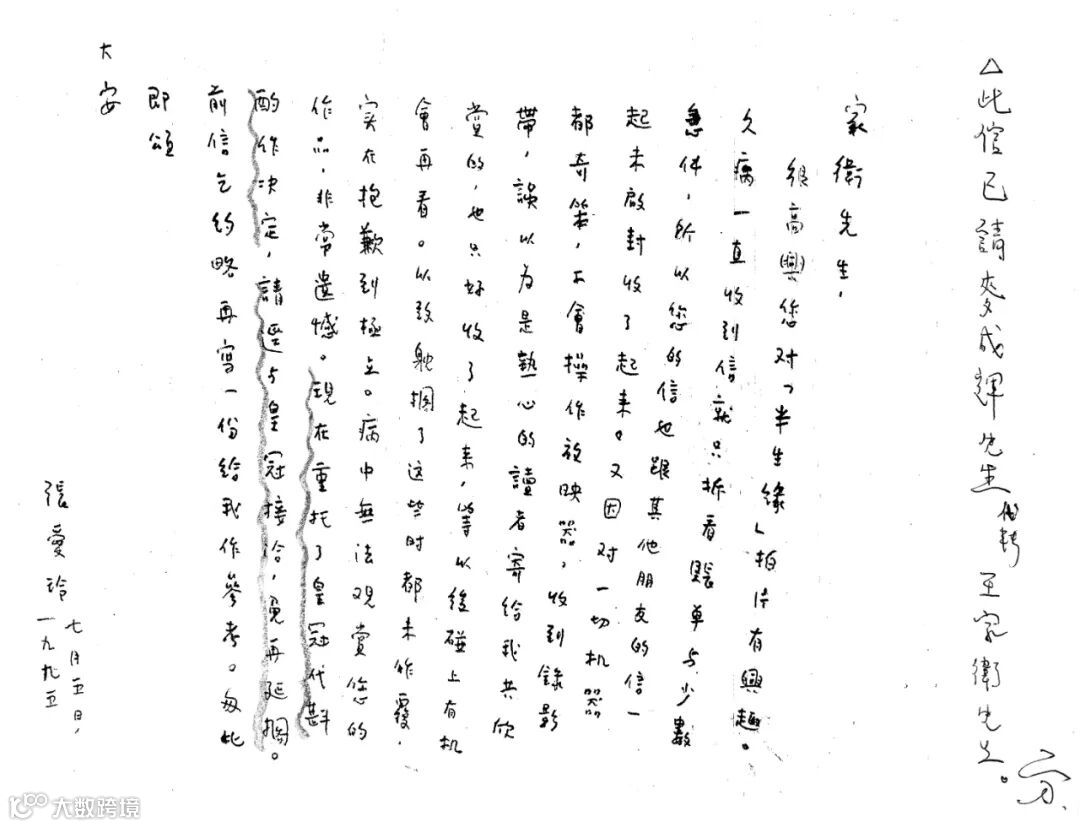 △此信已請麥成輝先生代轉王家衛先生。
家衛先生，
很高興您对「半生緣」拍片有興趣。
久病一直收到信就只拆看賬单与少數
急件，所以您的信也跟其他朋友的信一
起未啟封收了起来。又因对一切机器
都奇笨，不會操作放映器，收到錄影
帶，誤以为是熱心的讀者寄給我共欣
賞的，也只好收了起来，等以後碰上有机
會再看。以致躭擱了这些时都未作覆，
实在抱歉到極点。病中無法观赏您的
作品，非常遺憾。現在重托了皇冠代斟
酌作决定，請逕与皇冠接洽，免再延擱。
前信乞約略再寫一份給我作參考。匆此
即頌
大安
張愛玲
七月五日，
一九九五
大数跨境